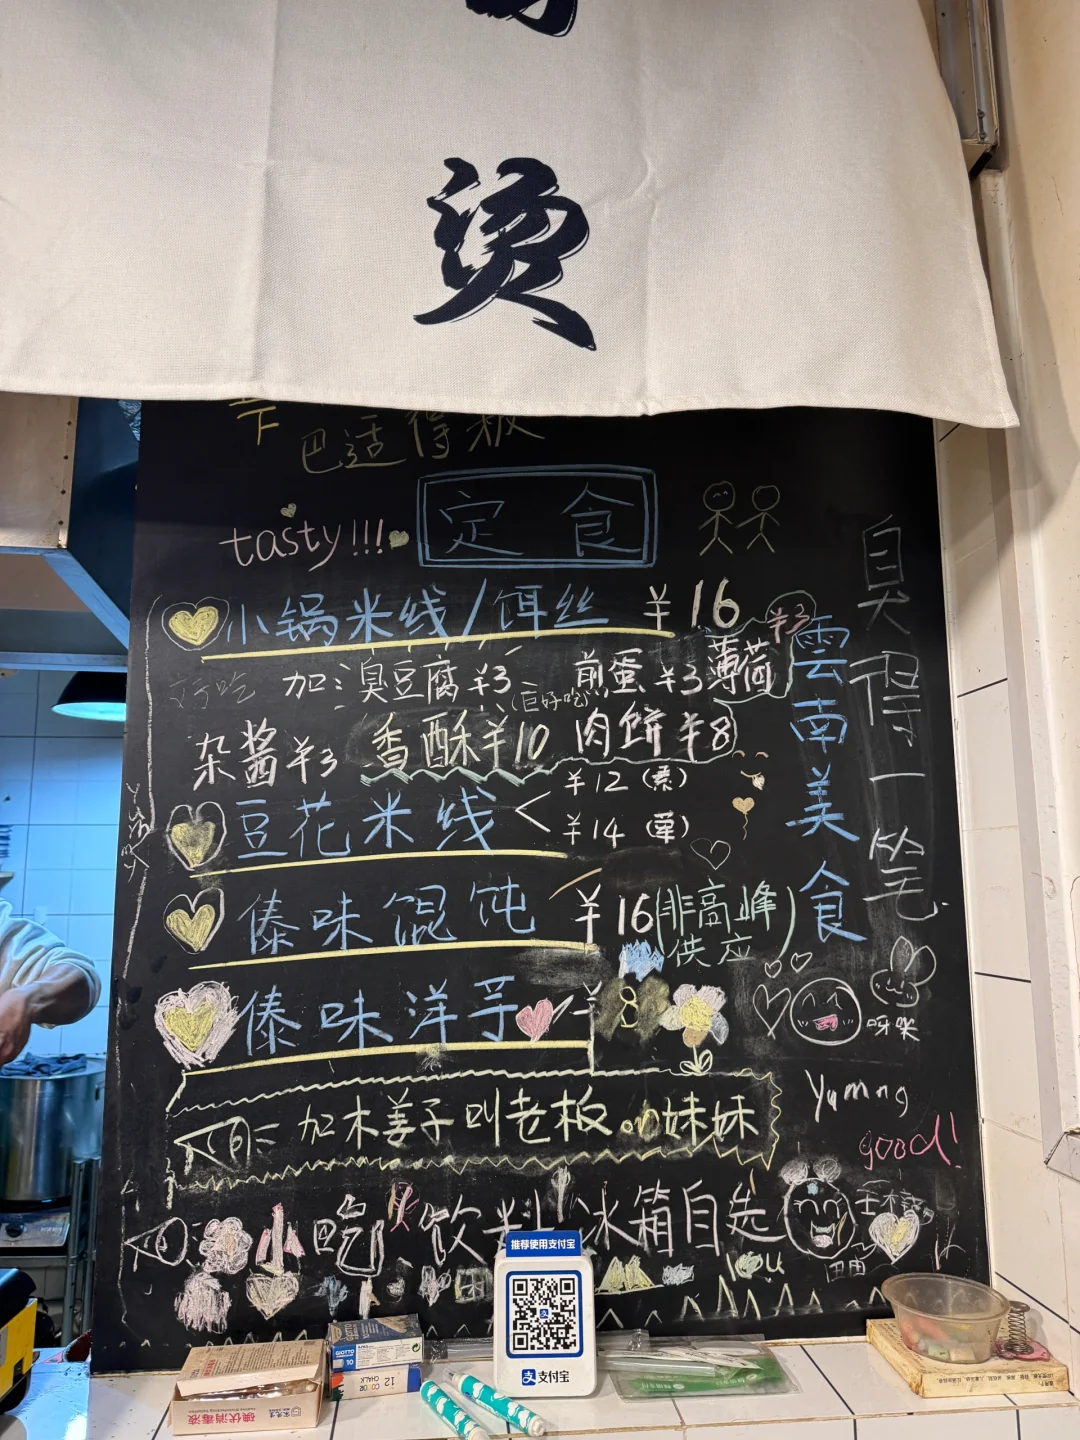 烫
巴适得板
tasty!!!
定食
小锅米线/饵丝 ¥16
好吃
加:臭豆腐¥3(巨好吃) 煎蛋¥3 薄荷¥3
杂酱¥3 香酥¥10 肉饼¥8
豆花米线 ¥12(素)
¥14(荤)
傣味馄饨 ¥16(非高峰供应)
傣味洋芋 ¥8
加木姜子叫老板or妹妹
小吃 饮料 冰箱自选
雲南美食
臭得一笔
呀咪
good!
you
推荐使用支付宝
支付宝
GIOTTO
10
12
COLOR
CHALK
碘伏消毒液